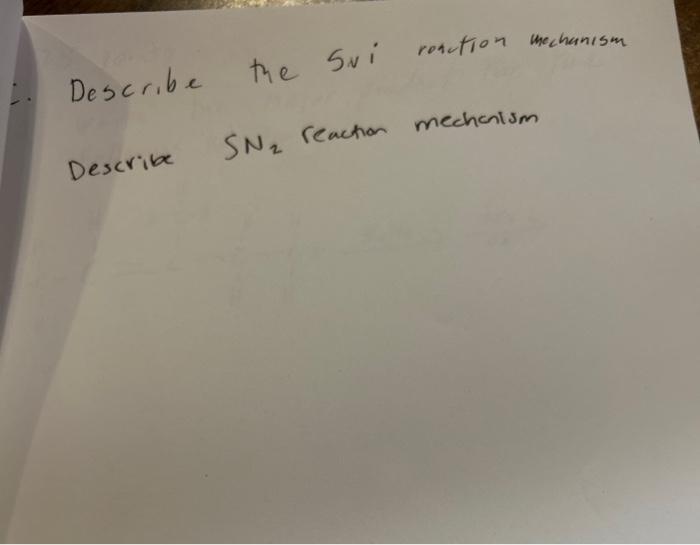 Describe the SNi reaction mechanism
Describe SN2 reaction mechanism